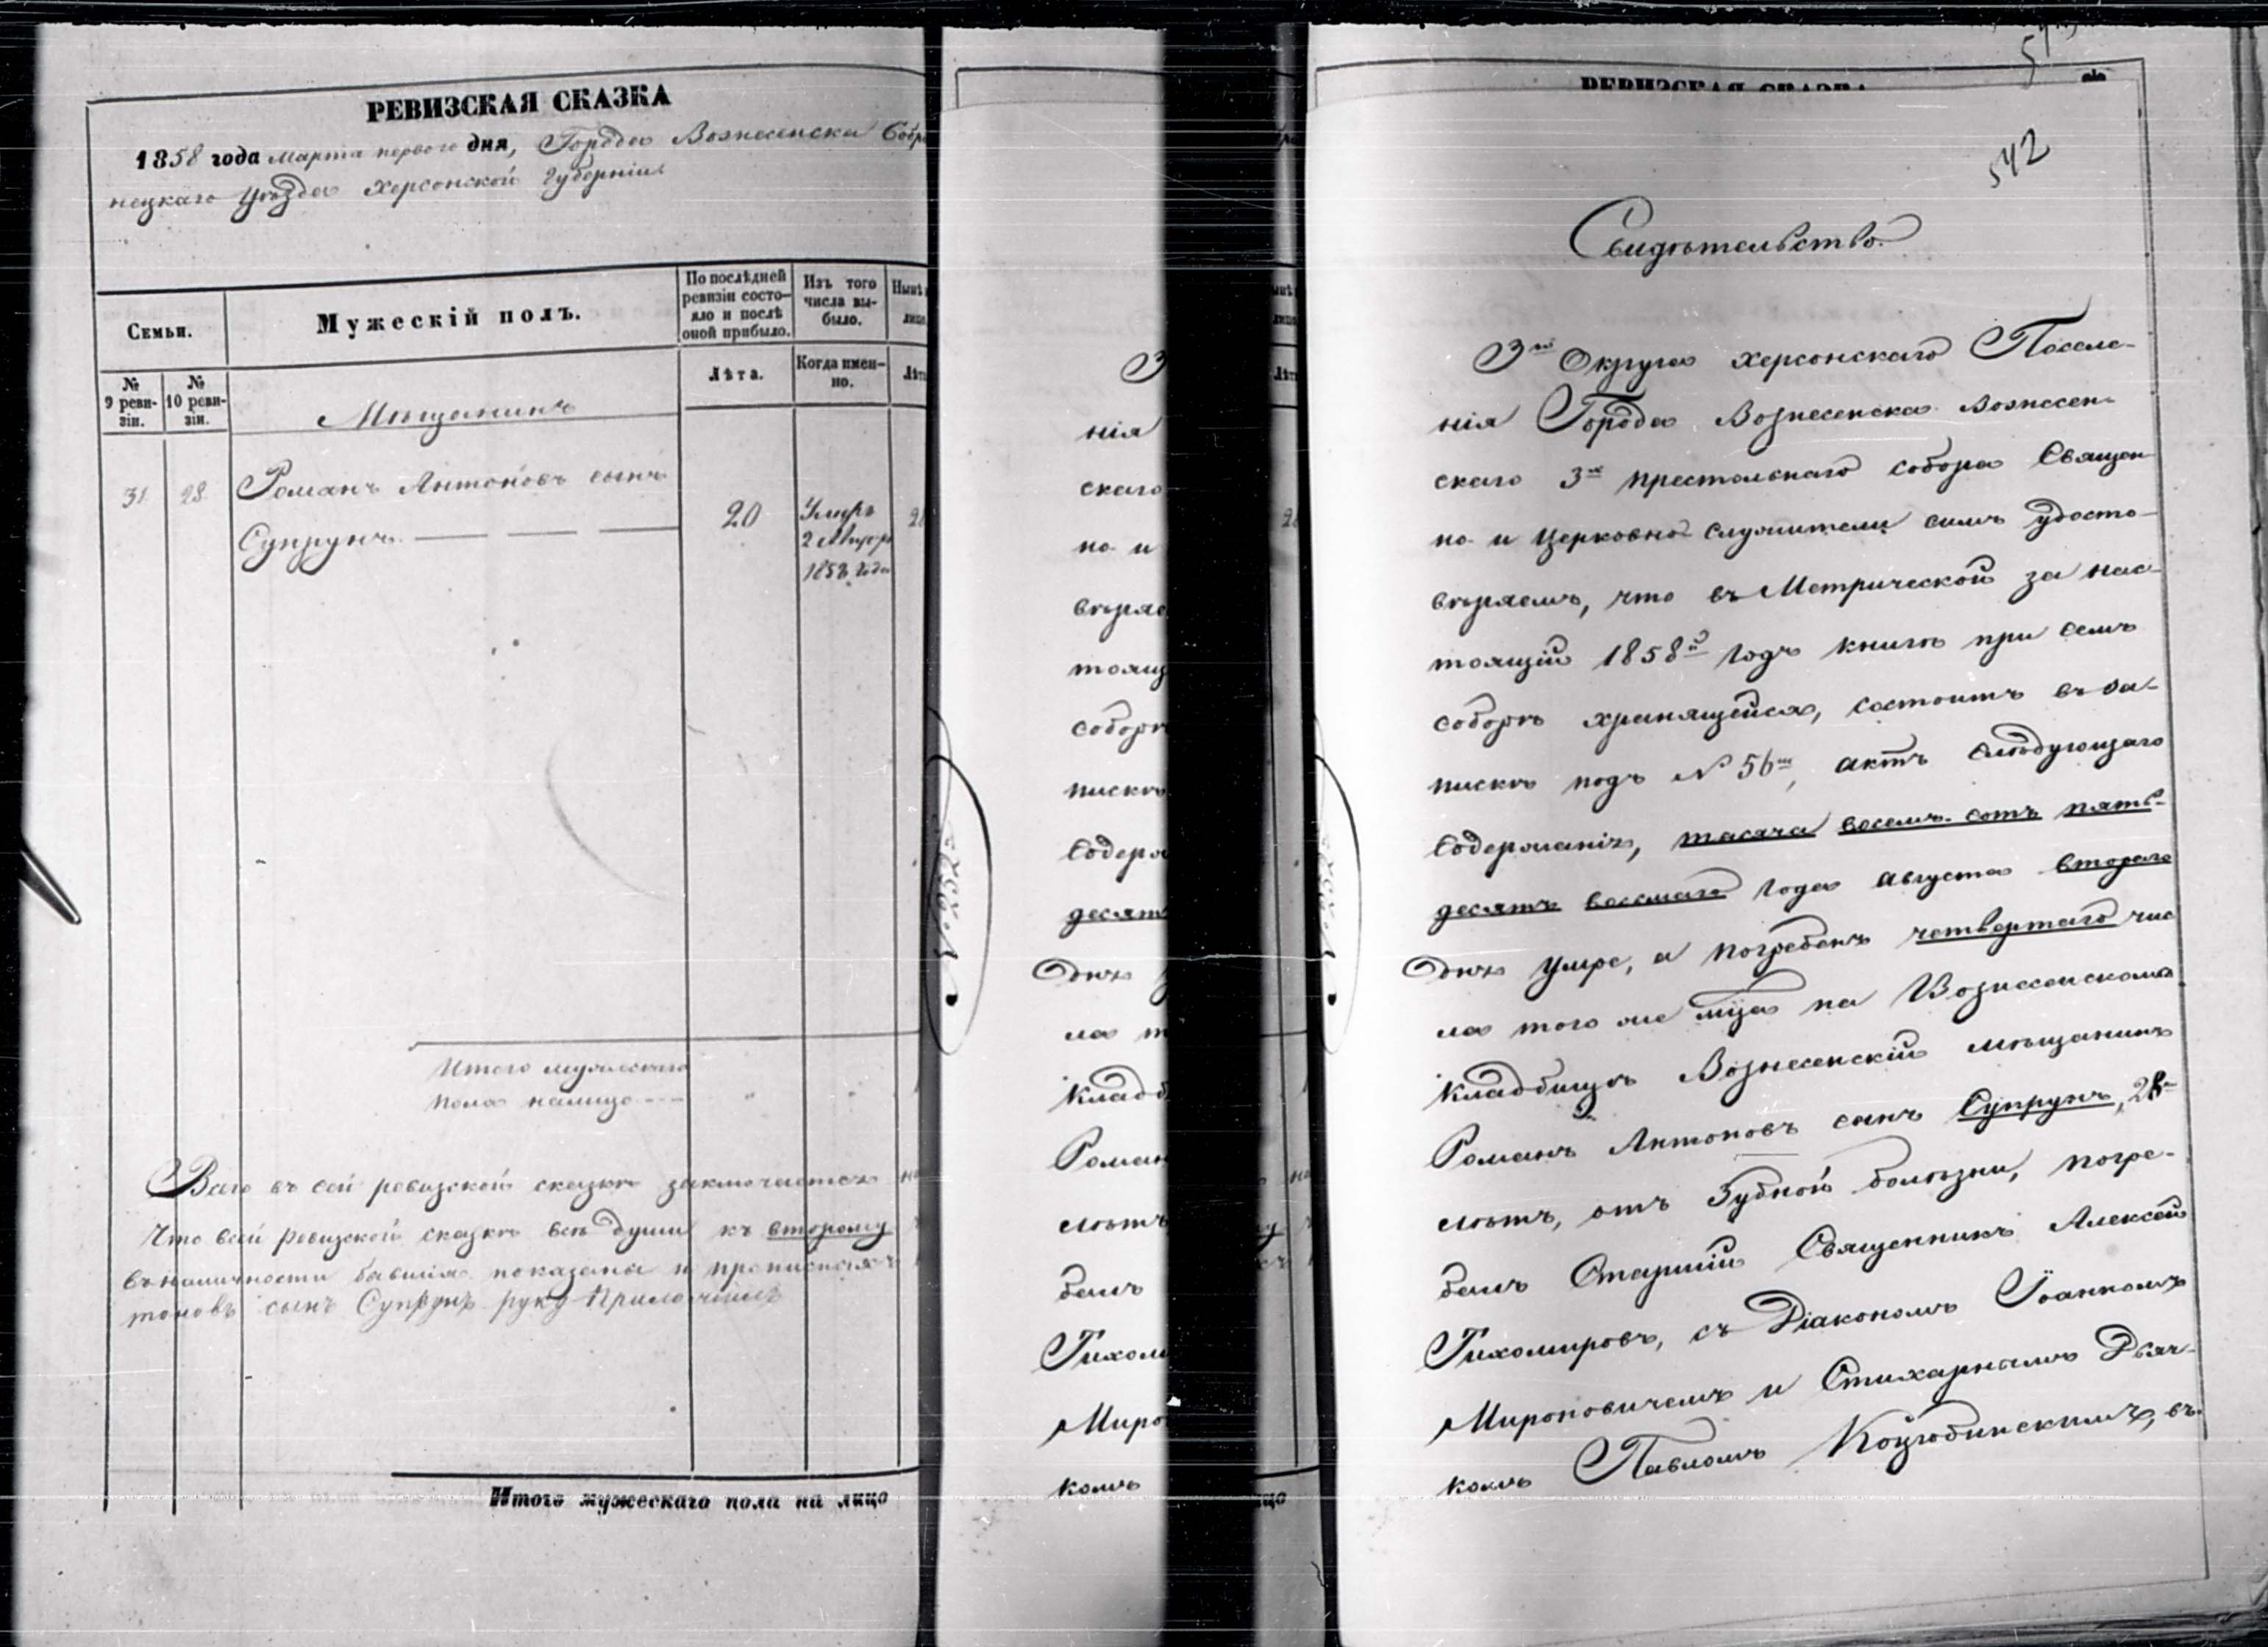 РЕВИЗСКАЯ СКАЗКА
1858 года марта первого дня, Города Вознесенска Бобри
нецкаго Уѣзда Херсонской Губерніи
Семьи.
Мужескій полъ.
По послѣдней ревизіи состо-
яло и послѣ
оной прибыло.
Изъ того
числа вы-
было.
№
9 реви-
зіи.
№
10 реви-
зіи.
Лѣта.
Когда имен-
но.
Мѣщанинъ
31. 28. Романъ Антоновъ сынъ
Супрунъ 20 Умеръ
2 Августа
1858 года
Итого мужескаго
пола налицо
Всего въ сей ревизской сказкѣ заключается
Что всей ревизской сказкѣ всѣ души къ второму
въ наличности бывшія показаны и прописных
тоновъ сынъ Супрунъ руку приложилъ
Итого мужескаго пола на лицо
РЕВИЗСКАЯ СКАЗКА
542
Свидѣтельство.
3го Округа Херсонскаго Поселе-
нія Города Вознесенска Вознесен-
скаго 3хъ престольнаго собора Священ-
но и Церковно Служители симъ удосто-
вѣряемъ, что въ Метрической за нас-
тоящій 1858й годъ книгѣ при семъ
соборѣ хранящейся, состоитъ въ за-
пискѣ подъ № 56мъ, актъ слѣдующаго
содержанія, тысяча восемь сотъ пять-
десятъ восьмаго года августа втораго
дня умре, а погребенъ четвертаго чис
ла того же мца на Вознесенскомъ
Кладбищѣ Вознесенскій мѣщанинъ
Романъ Антоновъ сынъ Супрунъ, 28
лѣтъ, отъ зубной болѣзни, погре-
балъ Старшій Священникъ Алексѣй
Тихомировъ, съ Діакономъ Іоанномъ
Мироновичемъ и Стихарнымъ Дьяч-
комъ Павломъ Коцюбинскимъ, въ